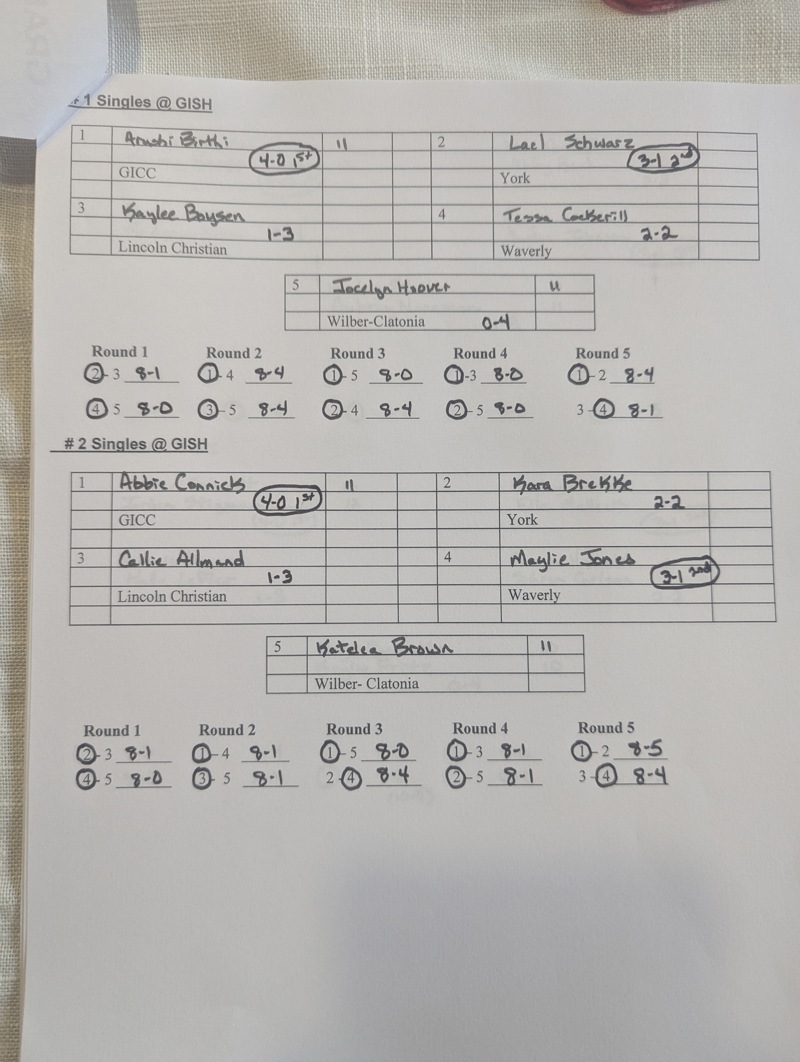 # 1 Singles @ GISH
1 Arushi Birthi 11 2 Lael Schwarz
4-0 1st 3-1 2nd
GICC York
3 Kaylee Boysen 4 Tessa Cockerill
1-3 2-2
Lincoln Christian Waverly
5 Jocelyn Hoover 11
Wilber-Clatonia 0-4
Round 1 Round 2 Round 3 Round 4 Round 5
2-3 8-1 1-4 8-4 1-5 8-0 1-3 8-0 1-2 8-4
4-5 8-0 3-5 8-4 2-4 8-4 2-5 8-0 3-4 8-1
# 2 Singles @ GISH
1 Abbie Connick 11 2 Kara Brekke
4-0 1st 2-2
GICC York
3 Callie Allmand 4 Maylie Jones
1-3 3-1 2nd
Lincoln Christian Waverly
5 Katelea Brown 11
Wilber- Clatonia
Round 1 Round 2 Round 3 Round 4 Round 5
2-3 8-1 1-4 8-1 1-5 8-0 1-3 8-1 1-2 8-5
4-5 8-0 3-5 8-1 2-4 8-4 2-5 8-1 3-4 8-4